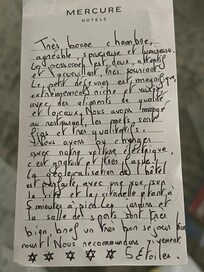 MERCURE
HOTELS
Très bonne chambre,
agréable, spacieuse et lumineuse.
Le personnel est doux, attentif
et accueillant, très souriant.
Le petit déjeuner est magnifique,
extrêmement riche et varié
avec des aliments de qualité
et locaux. Nous avons mangé
au restaurant, les mets sont
fins et très qualitatifs.
Nous avons pu charger
avec notre voiture électrique,
c'est gratuit et très facile !
La géolocalisation de l'hôtel
est parfaite, avec une vue sur
la ville et la citadelle
5 minutes à pied. Les jardins et
la salle de sports sont très
bien, bref un très bon séjour bien
court ! Nous recommandons vivement
5 Étoiles.